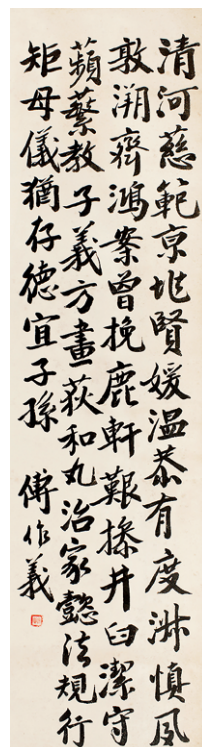 清河慈範京兆賢媛温恭有度淑慎夙
敦溯齊鴻案曾挽鹿軒艱操井臼潔守
蘋蘩教子義方畫荻和丸治家懿法規行
矩母儀猶存德宜子孫 傅作義